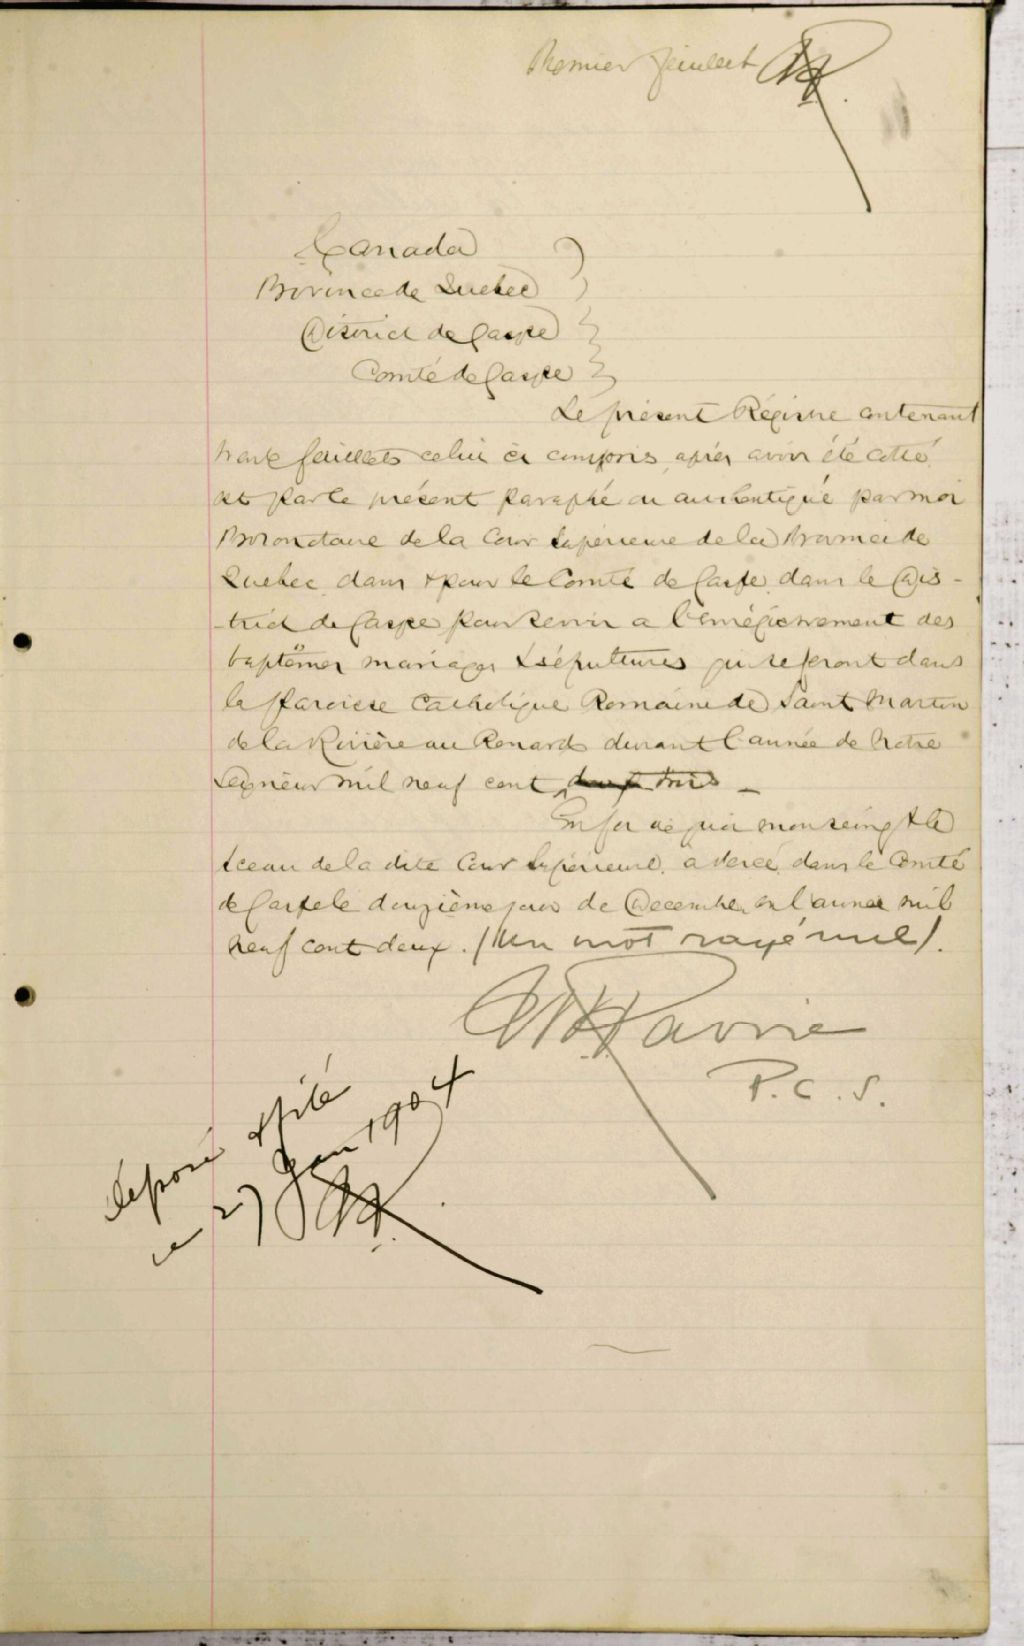 Premier feuillet
Canada
Province de Quebec
District de Gaspe
Comté de Gaspe
Le présent Régistre contenant
trente feuillets celui ci compris, après avoir été cotté
et par le présent paraphé ou authentiqué par moi
Protonotaire de la Cour Supérieure de la Province de
Quebec, dans & pour le Comté de Gaspe, dans le Dis-
trict de Gaspe pour servir a l'enrégistrement des
baptêmes mariages & sépultures qui se feront dans
la Paroisse Catholique Romaine de Saint Martin
de la Rivière au Renard durant l'année de Notre
Seigneur mil neuf cent deux trois —
En foi de quoi mon seing & le
sceau de la dite Cour Supérieure, a Percé, dans le Comté
de Gaspe le douzième jour de Decembre en l'année mil
neuf cent deux. (Un mot rayé nul).
Lavoie
P. C. S.
déposé & filé
ce 27 Jan 1904